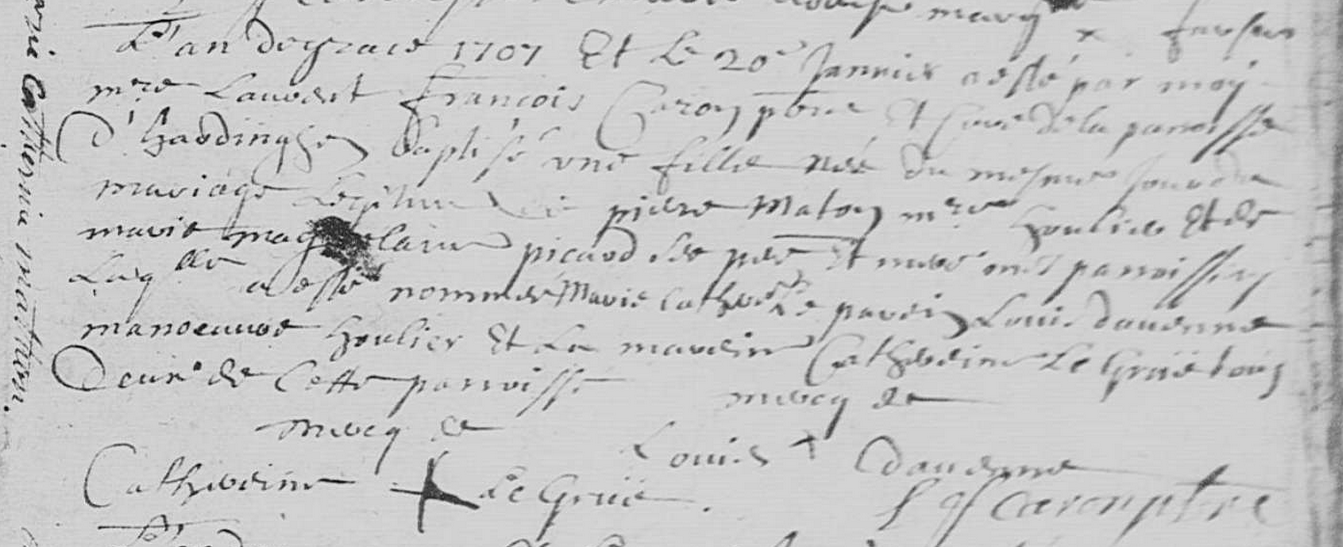 L'an de grace 1707 Et Le 20e Janvier a esté par moy
mre Laurent francois Caron pbre Et Curé de la paroisse
D'hardinghen baptisé une fille née du mesme jour du
mariage Legitime de pierre Maton mre houlier Et de
marie magdelaine picard ses pere Et mere mes paroissiens
Laqlle a esté nommée Marie Catherine parein Louis davenne
manoeuvre houlier Et La mareine Catherine Le Grüe tous
Deux de Cette paroisse
mercq de
mercq de
Louis + davenne
Catherine + Le Grüe.
L f Caron pbre
marie Catherine maton.